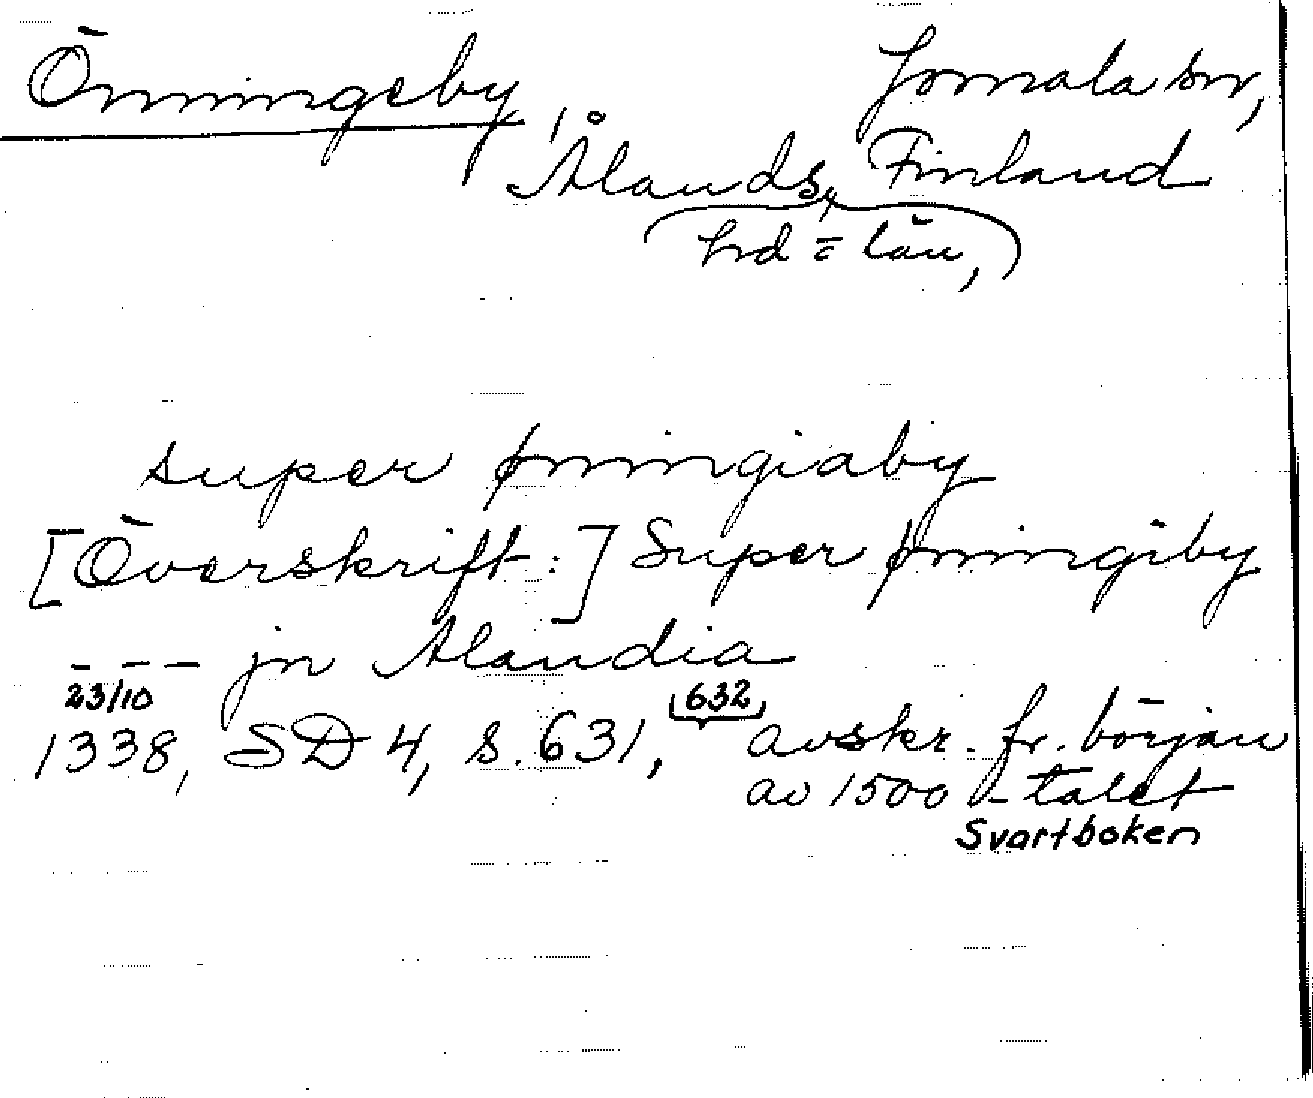 Önningeby, Jomala sn,
Ålands, Finland
hrd = län,
super ønningiaby
[Överskrift:] Super ønningiby
- - - jn Alandia
23/10 632
1338, SD 4, s. 631, avskr. fr. början
av 1500-talet
Svartboken